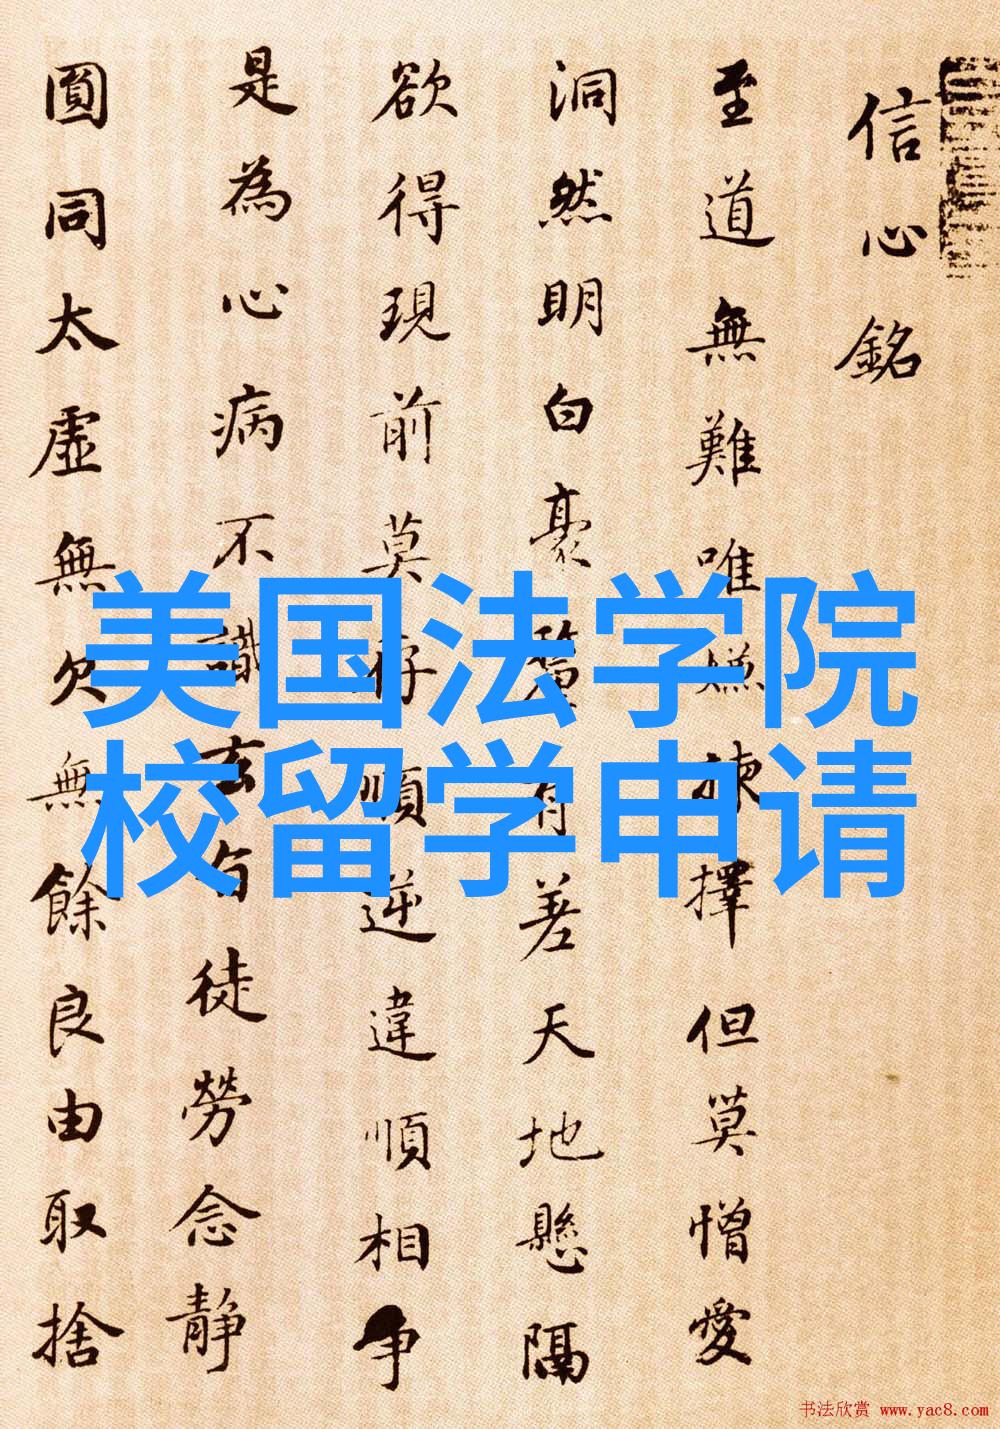 信心銘
至道無難唯嫌揀擇但莫憎愛
洞然明白豪釐有差天地懸隔
欲得現前莫存順逆違順相争
是為心病不識玄旨徒勞念静
圓同太虛無欠無餘良由取捨
美国法学院
校留学申请
书法欣赏 www.yac8.com